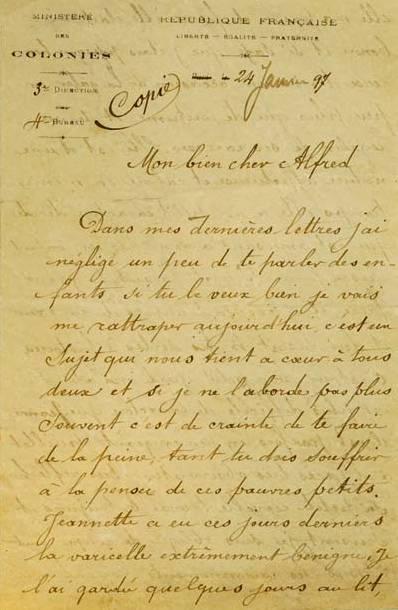 MINISTÈRE
DES
COLONIES
3e DIRECTION
4e BUREAU
RÉPUBLIQUE FRANÇAISE
LIBERTÉ — ÉGALITÉ — FRATERNITÉ
Copie
le 24 Janvier 97
Mon bien cher Alfred
Dans mes dernières lettres j'ai
négligé un peu de te parler des en-
fants si tu le veux bien je vais
me rattraper aujourd'hui c'est un
sujet qui nous tient a cœur à tous
deux et si je ne l'aborde pas plus
souvent c'est de crainte de te faire
de la peine, tant tu dois souffrir
à la pensée de ces pauvres petits.
Jeannette a eu ces jours derniers
la varicelle extrêmement bénigne, je
l'ai gardé quelques jours au lit,